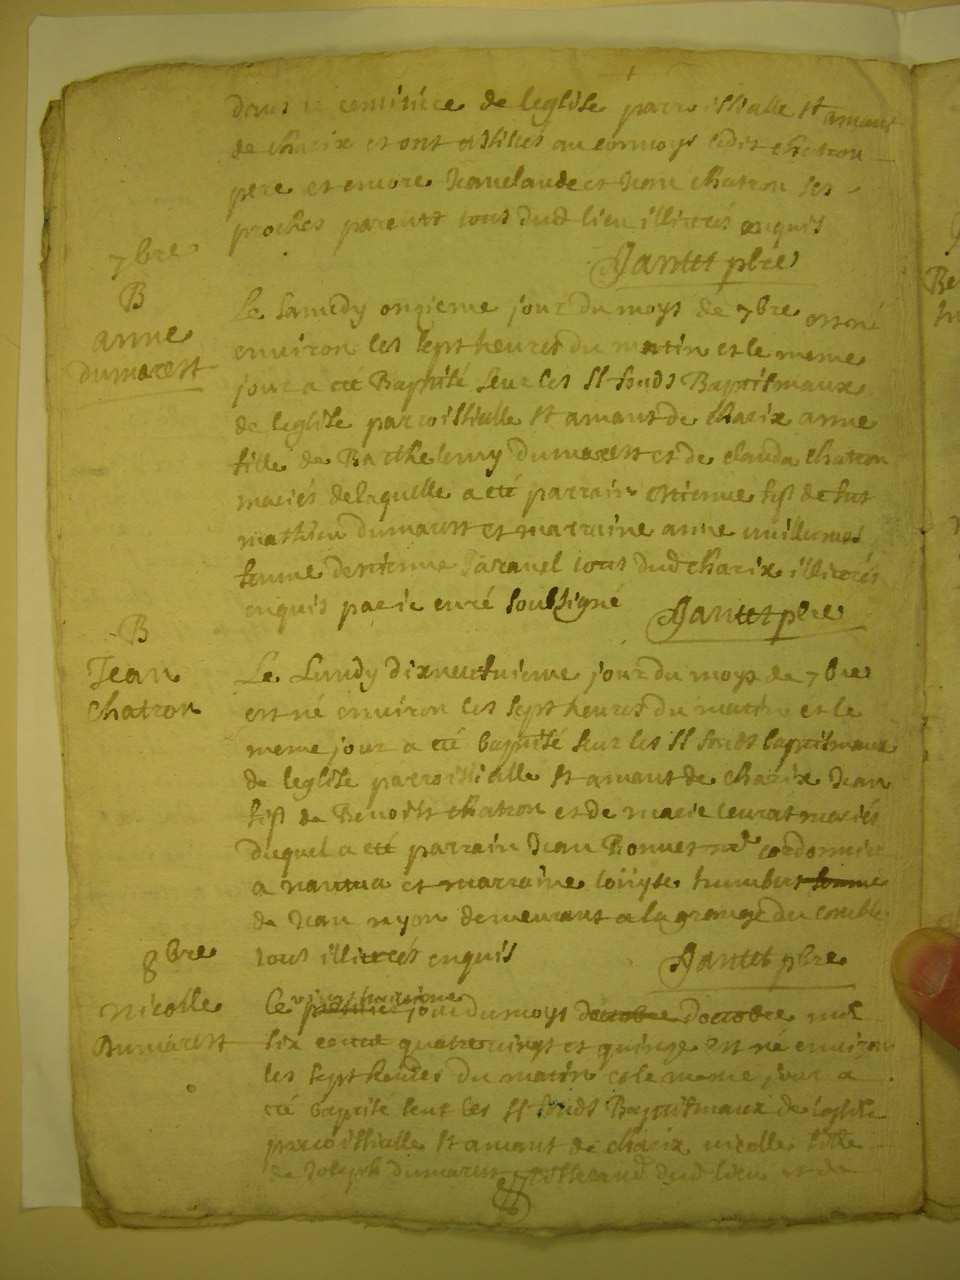 dans le cemitiere de leglise parroissialle St amant
de charix et ont assistes au convoys ledit chatron
pere et encore Jean claude et Jean chatron ses
proches parents tous dud lieu illiterés enquis
Jantet pbre
7bre
B
anne
dumarest
Le Samedy onzieme jour du moys de 7bre est né
environ les sept heures du matin et le meme
jour a eté Baptisé sur les St fonds Baptismaux
de leglise parroissialle St amant de charix anne
fille de Barthelemy dumarest et de clauda chatron
mariés de laquelle a eté parrain estienne fils de fut
mathieu dumarest et marraine anne
femme destienne tous dud charix illiterés
enquis par ie curé soubsigné Jantet pbre
B
Jean
chatron
Le Lundy dixneufvieme jour du moys de 7bre
est né environ les sept heures du matin et le
meme jour a eté baptisé sur les St fonds baptismaux
de leglise parroissialle St amant de charix Jean
fils de Benoist chatron et de marie leurat mariés
duquel a eté parrain Jean Bonnet md cordonnier
a nantua et marraine loüyse humbert femme
de Jean nyon demeurant a la grange du comble
tous illiterés enquis Jantet pbre
8bre
nicolle
Dumarest
Le premier jour du moys doctobre doctobre mil
six cent quatre vingt et quinze est né environ
les sept heures du matin et le meme jour a
eté baptisé sur les St fonds Baptismaux de leglise
parroissialle St amant de charix nicolle fille
de Joseph dumarest dud lieu et de